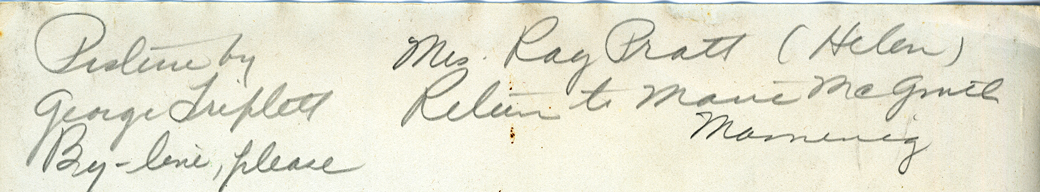 Picture by
George Triplett
By-line, please
Mrs. Ray Pratt (Helen)
Return to Marie McGrath